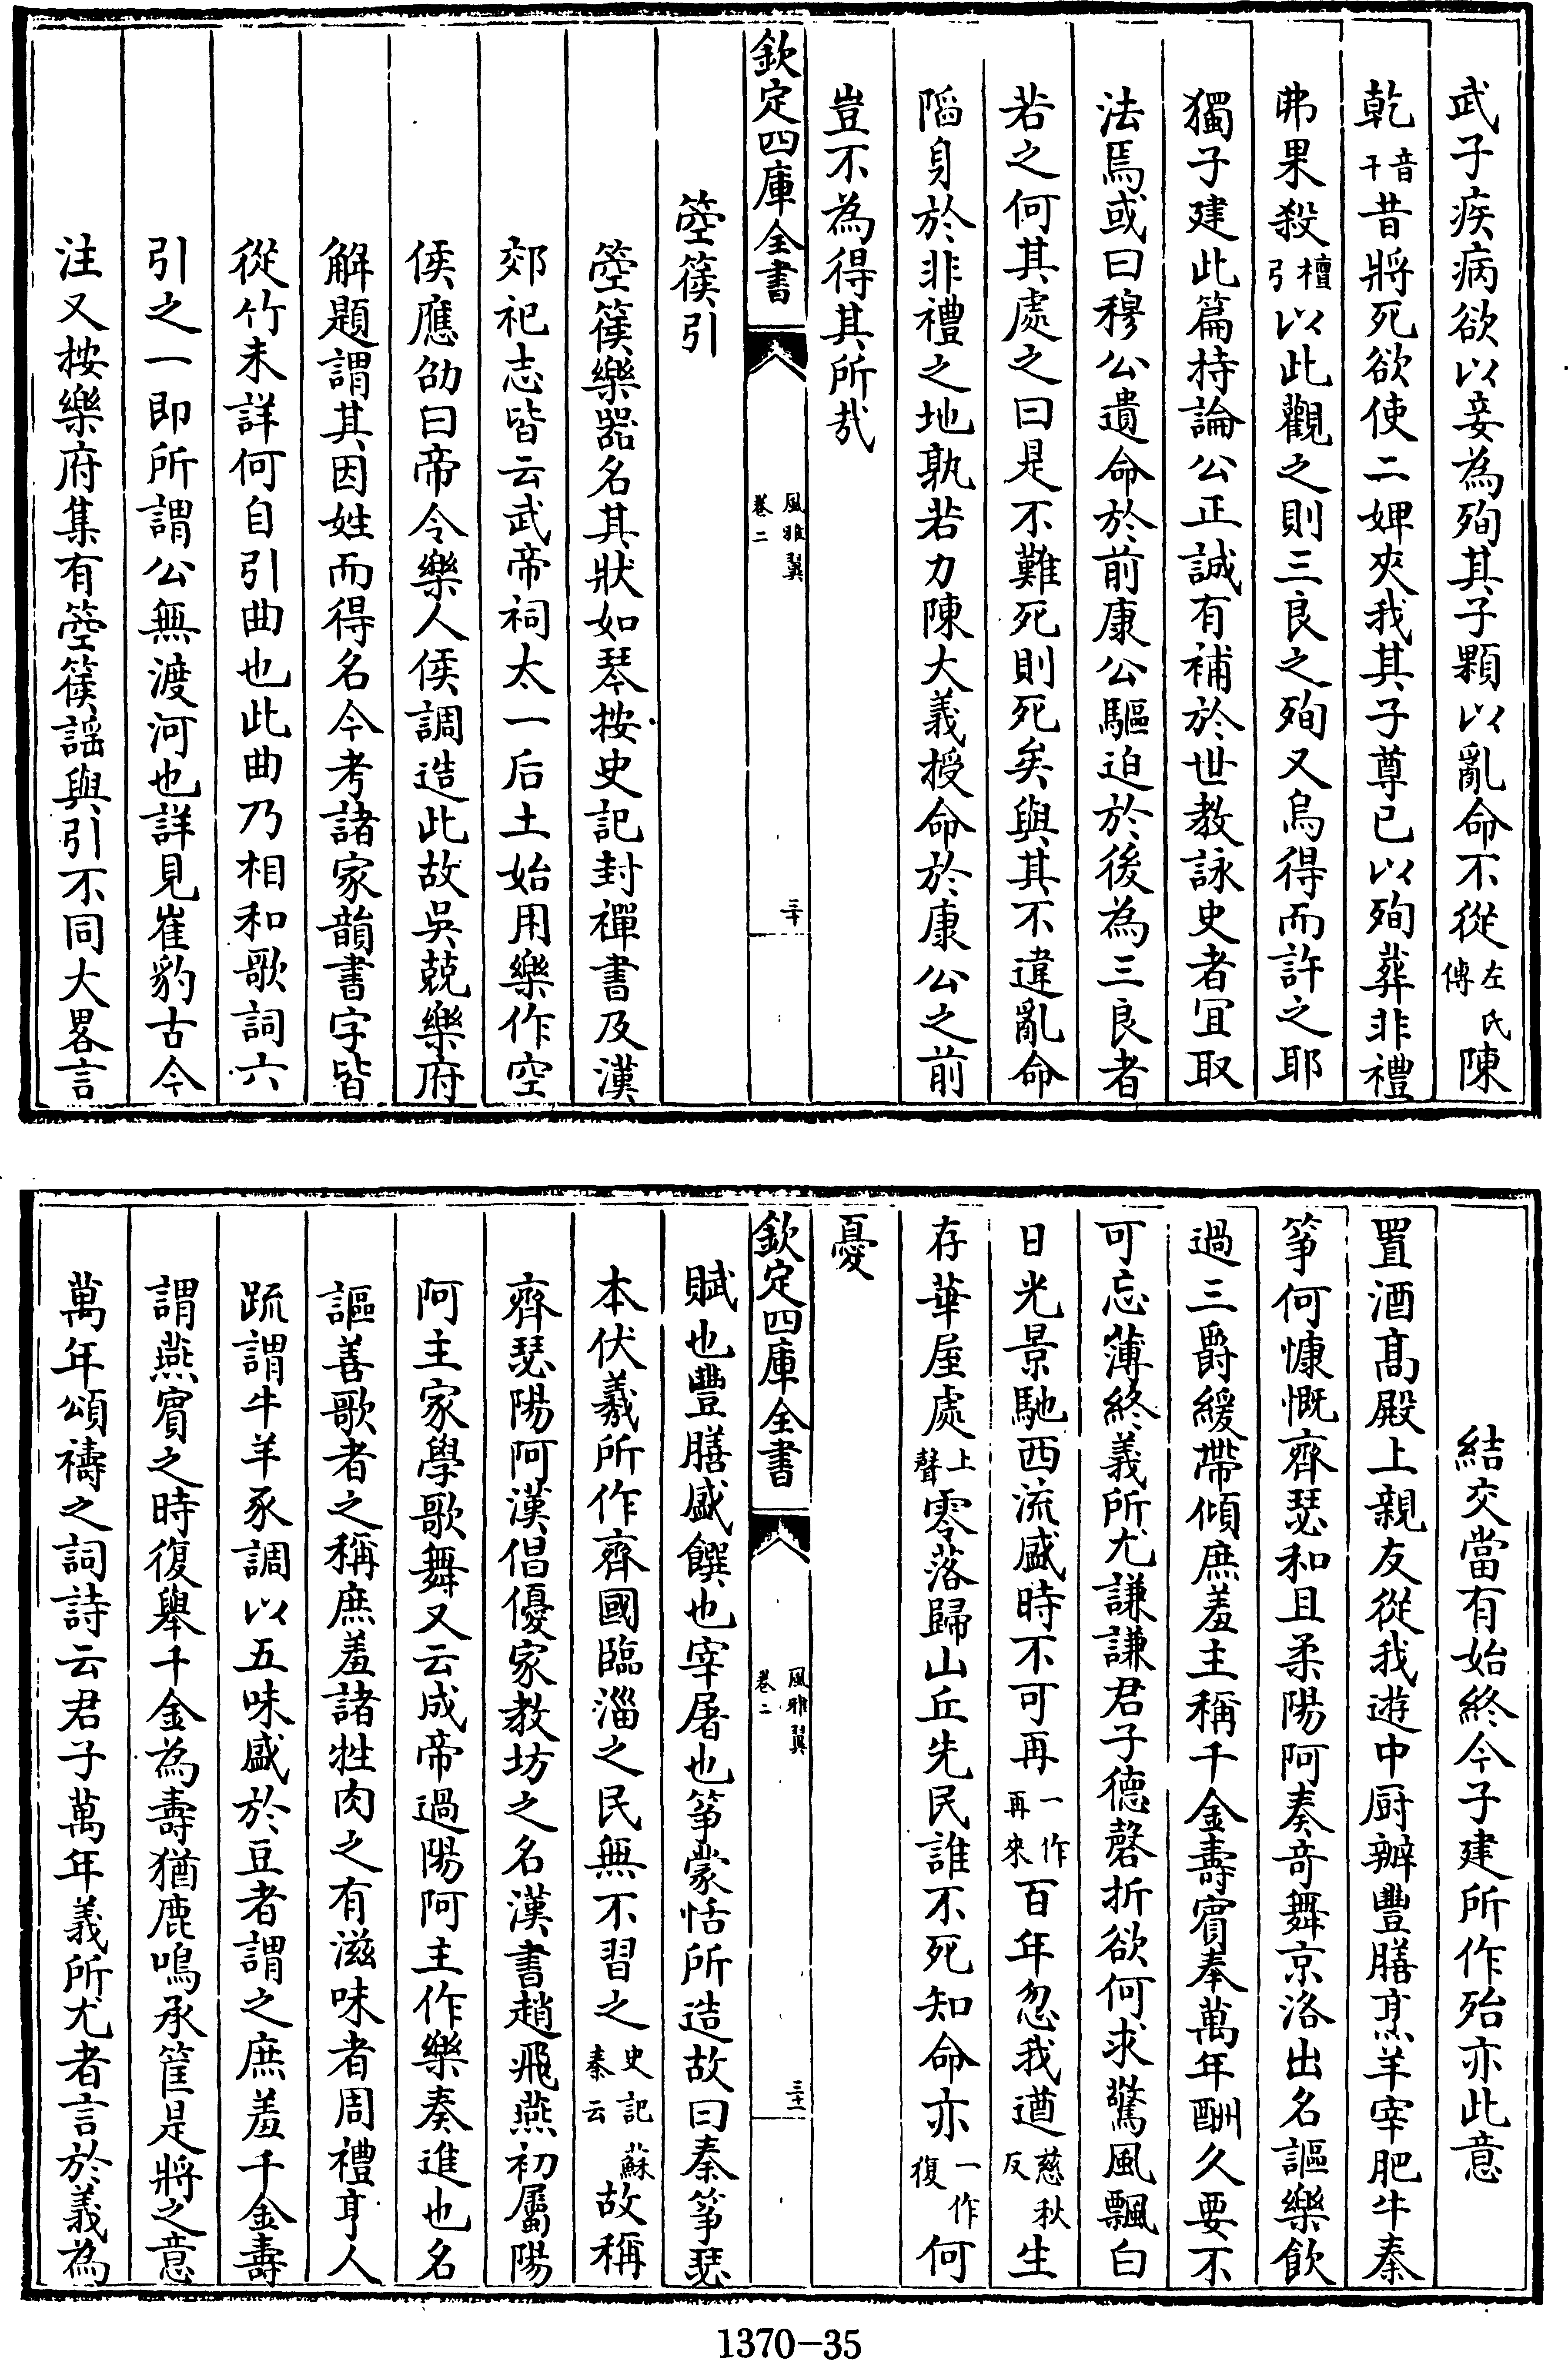 武子疾病欲以妾為殉其子顆以亂命不從左氏傳陳
乾音干昔將死欲使二婢夾我其子尊已以殉葬非禮
弗果殺檀引以此觀之則三良之殉又烏得而許之耶
獨子建此篇持論公正誠有補於世教詠史者宜取
法焉或曰穆公遺命於前康公驅迫於後為三良者
若之何其處之曰是不難死則死矣與其不違亂命
陷身於非禮之地孰若力陳大義授命於康公之前
豈不為得其所哉
欽定四庫全書
風雅翼
卷二
三十
箜篌引
箜篌樂器名其狀如琴按史記封禪書及漢
郊祀志皆云武帝祠太一后土始用樂作空
侯應劭曰帝令樂人侯調造此故吳兢樂府
解題謂其因姓而得名今考諸家韻書字皆
從竹未詳何自引曲也此曲乃相和歌詞六
引之一即所謂公無渡河也詳見崔豹古今
注又按樂府集有箜篌謡與引不同大畧言
結交當有始終今子建所作殆亦此意
置酒髙殿上親友從我遊中厨辦豐膳烹羊宰肥牛秦
筝何慷慨齊瑟和且柔陽阿奏奇舞京洛出名謳樂飲
過三爵緩帶傾庶羞主稱千金壽賔奉萬年酬久要不
可忘薄終義所尤謙謙君子德磬折欲何求驚風飄白
日光景馳西流盛時不可再一作再來百年忽我遒慈秋反生
存華屋處上聲零落歸山丘先民誰不死知命亦一作復何
憂
欽定四庫全書
風雅翼
卷二
三十一
賦也豐膳盛饌也宰屠也筝蒙恬所造故曰秦筝瑟
本伏羲所作齊國臨淄之民無不習之史記蘇秦云故稱
齊瑟陽阿漢倡優家教坊之名漢書趙飛燕初屬陽
阿主家學歌舞又云成帝過陽阿主作樂奏進也名
謳善歌者之稱庶羞諸牲肉之有滋味者周禮亨人
䟽謂牛羊豕調以五味盛於豆者謂之庶羞千金壽
謂燕賔之時復舉千金為壽猶鹿鳴承筐是將之意
萬年頌禱之詞詩云君子萬年義所尤者言於義為
1370-35